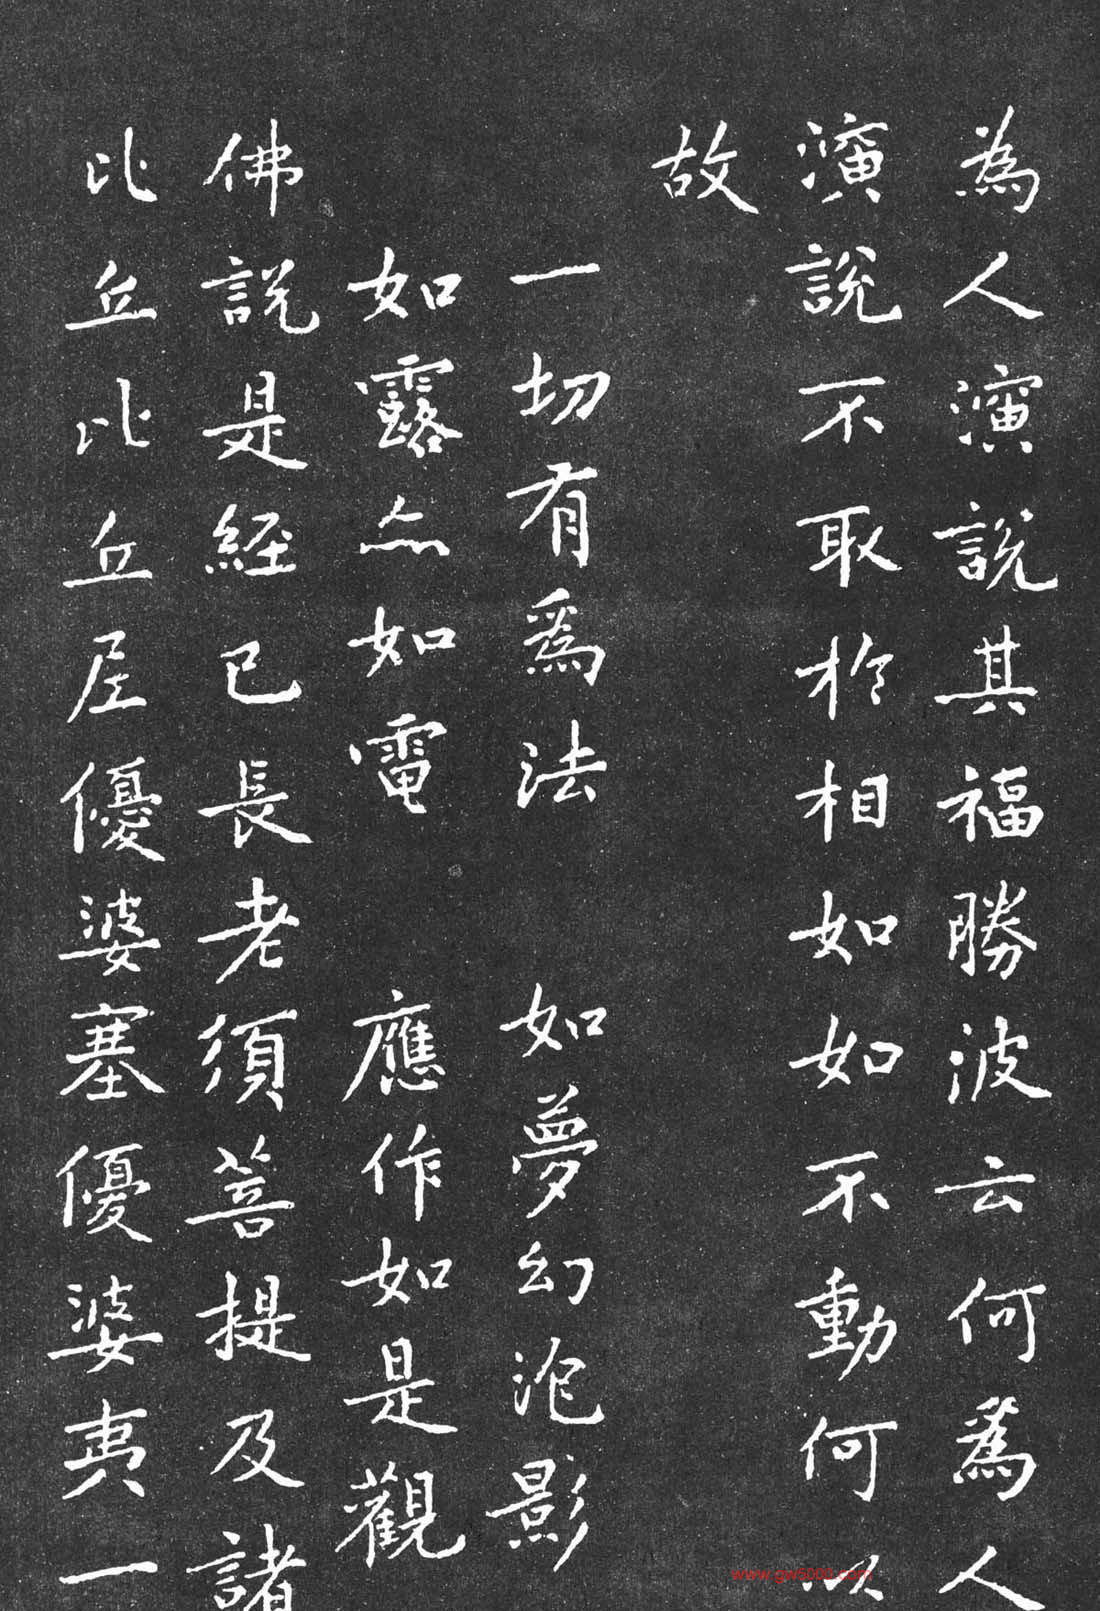 為人演說其福勝波云何為人
演說不取於相如如不動何以
故
一切有為法 如夢幻泡影
如露亦如電 應作如是觀
佛說是經已長老須菩提及諸
比丘比丘尼優婆塞優婆夷一
www.gw5000.com